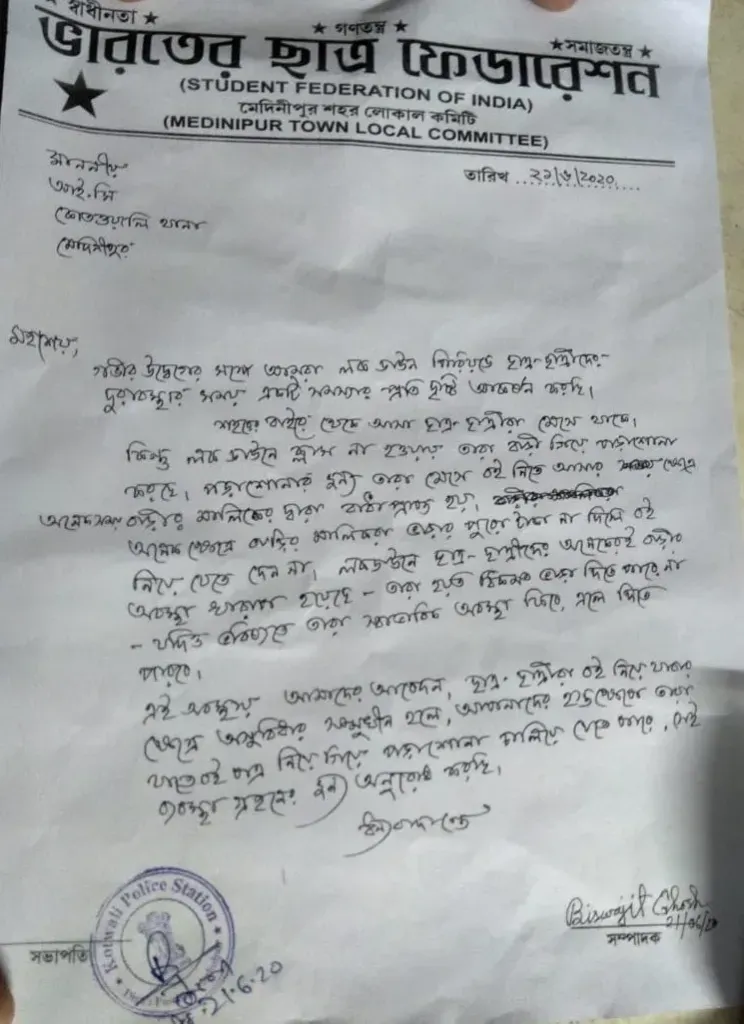 ★ স্বাধীনতা ★ ★ গণতন্ত্র ★ ★ সমাজতন্ত্র ★
ভারতের ছাত্র ফেডারেশন
(STUDENT FEDERATION OF INDIA)
মেদিনীপুর শহর লোকাল কমিটি
(MEDINIPUR TOWN LOCAL COMMITTEE)
তারিখ ...২১/৬/২০২০......
মাননীয়
আই.সি
কোতওয়ালি থানা
মেদিনীপুর
মহাশয়,
গভীর উদ্বেগের সঙ্গে আমরা লক ডাউন পিরিয়ডে ছাত্র-ছাত্রীদের
দুরাবস্থার সময় একটি সমস্যার প্রতি দৃষ্টি আকর্ষন করছি।
শহরের বাইরে থেকে আসা ছাত্র-ছাত্রীরা মেসে থাকে।
কিন্তু লক ডাউনে ক্লাস না হওয়ায় তারা বাড়ী গিয়ে পড়াশোনা
করছে। পড়াশোনার জন্য তারা মেসে বই নিতে আসার ক্ষেত্রে
অনেকসময় বাড়ীর মালিকের দ্বারা বাধাপ্রাপ্ত হয়।
অনেক ক্ষেত্রে বাড়ির মালিকরা ভাড়ার পুরো টাকা না দিলে বই
নিয়ে যেতে দেন না। লকডাউনে ছাত্র-ছাত্রীদের অনেকেরই বাড়ীর
অবস্থা খারাপ হয়েছে - তারা হয়ত ঠিকমত ভাড়া দিতে পারে না
- যদিও ভবিষ্যতে তারা স্বাভাবিক অবস্থা ফিরে এলে দিতে
পারবে।
এই অবস্থায় আমাদের আবেদন, ছাত্র-ছাত্রীরা বই নিয়ে যাবার
ক্ষেত্রে অসুবিধার সম্মুখীন হলে, আপনাদের হস্তক্ষেপে তারা
যাতে বই পত্র নিয়ে গিয়ে পড়াশোনা চালিয়ে যেতে পারে, সেই
ব্যবস্থা গ্রহনের জন্য অনুরোধ করছি।
ধন্যবাদান্তে
Biswajit Ghosh
21/06/20
সম্পাদক
সভাপতি
Kotwali Police Station
21.6.20